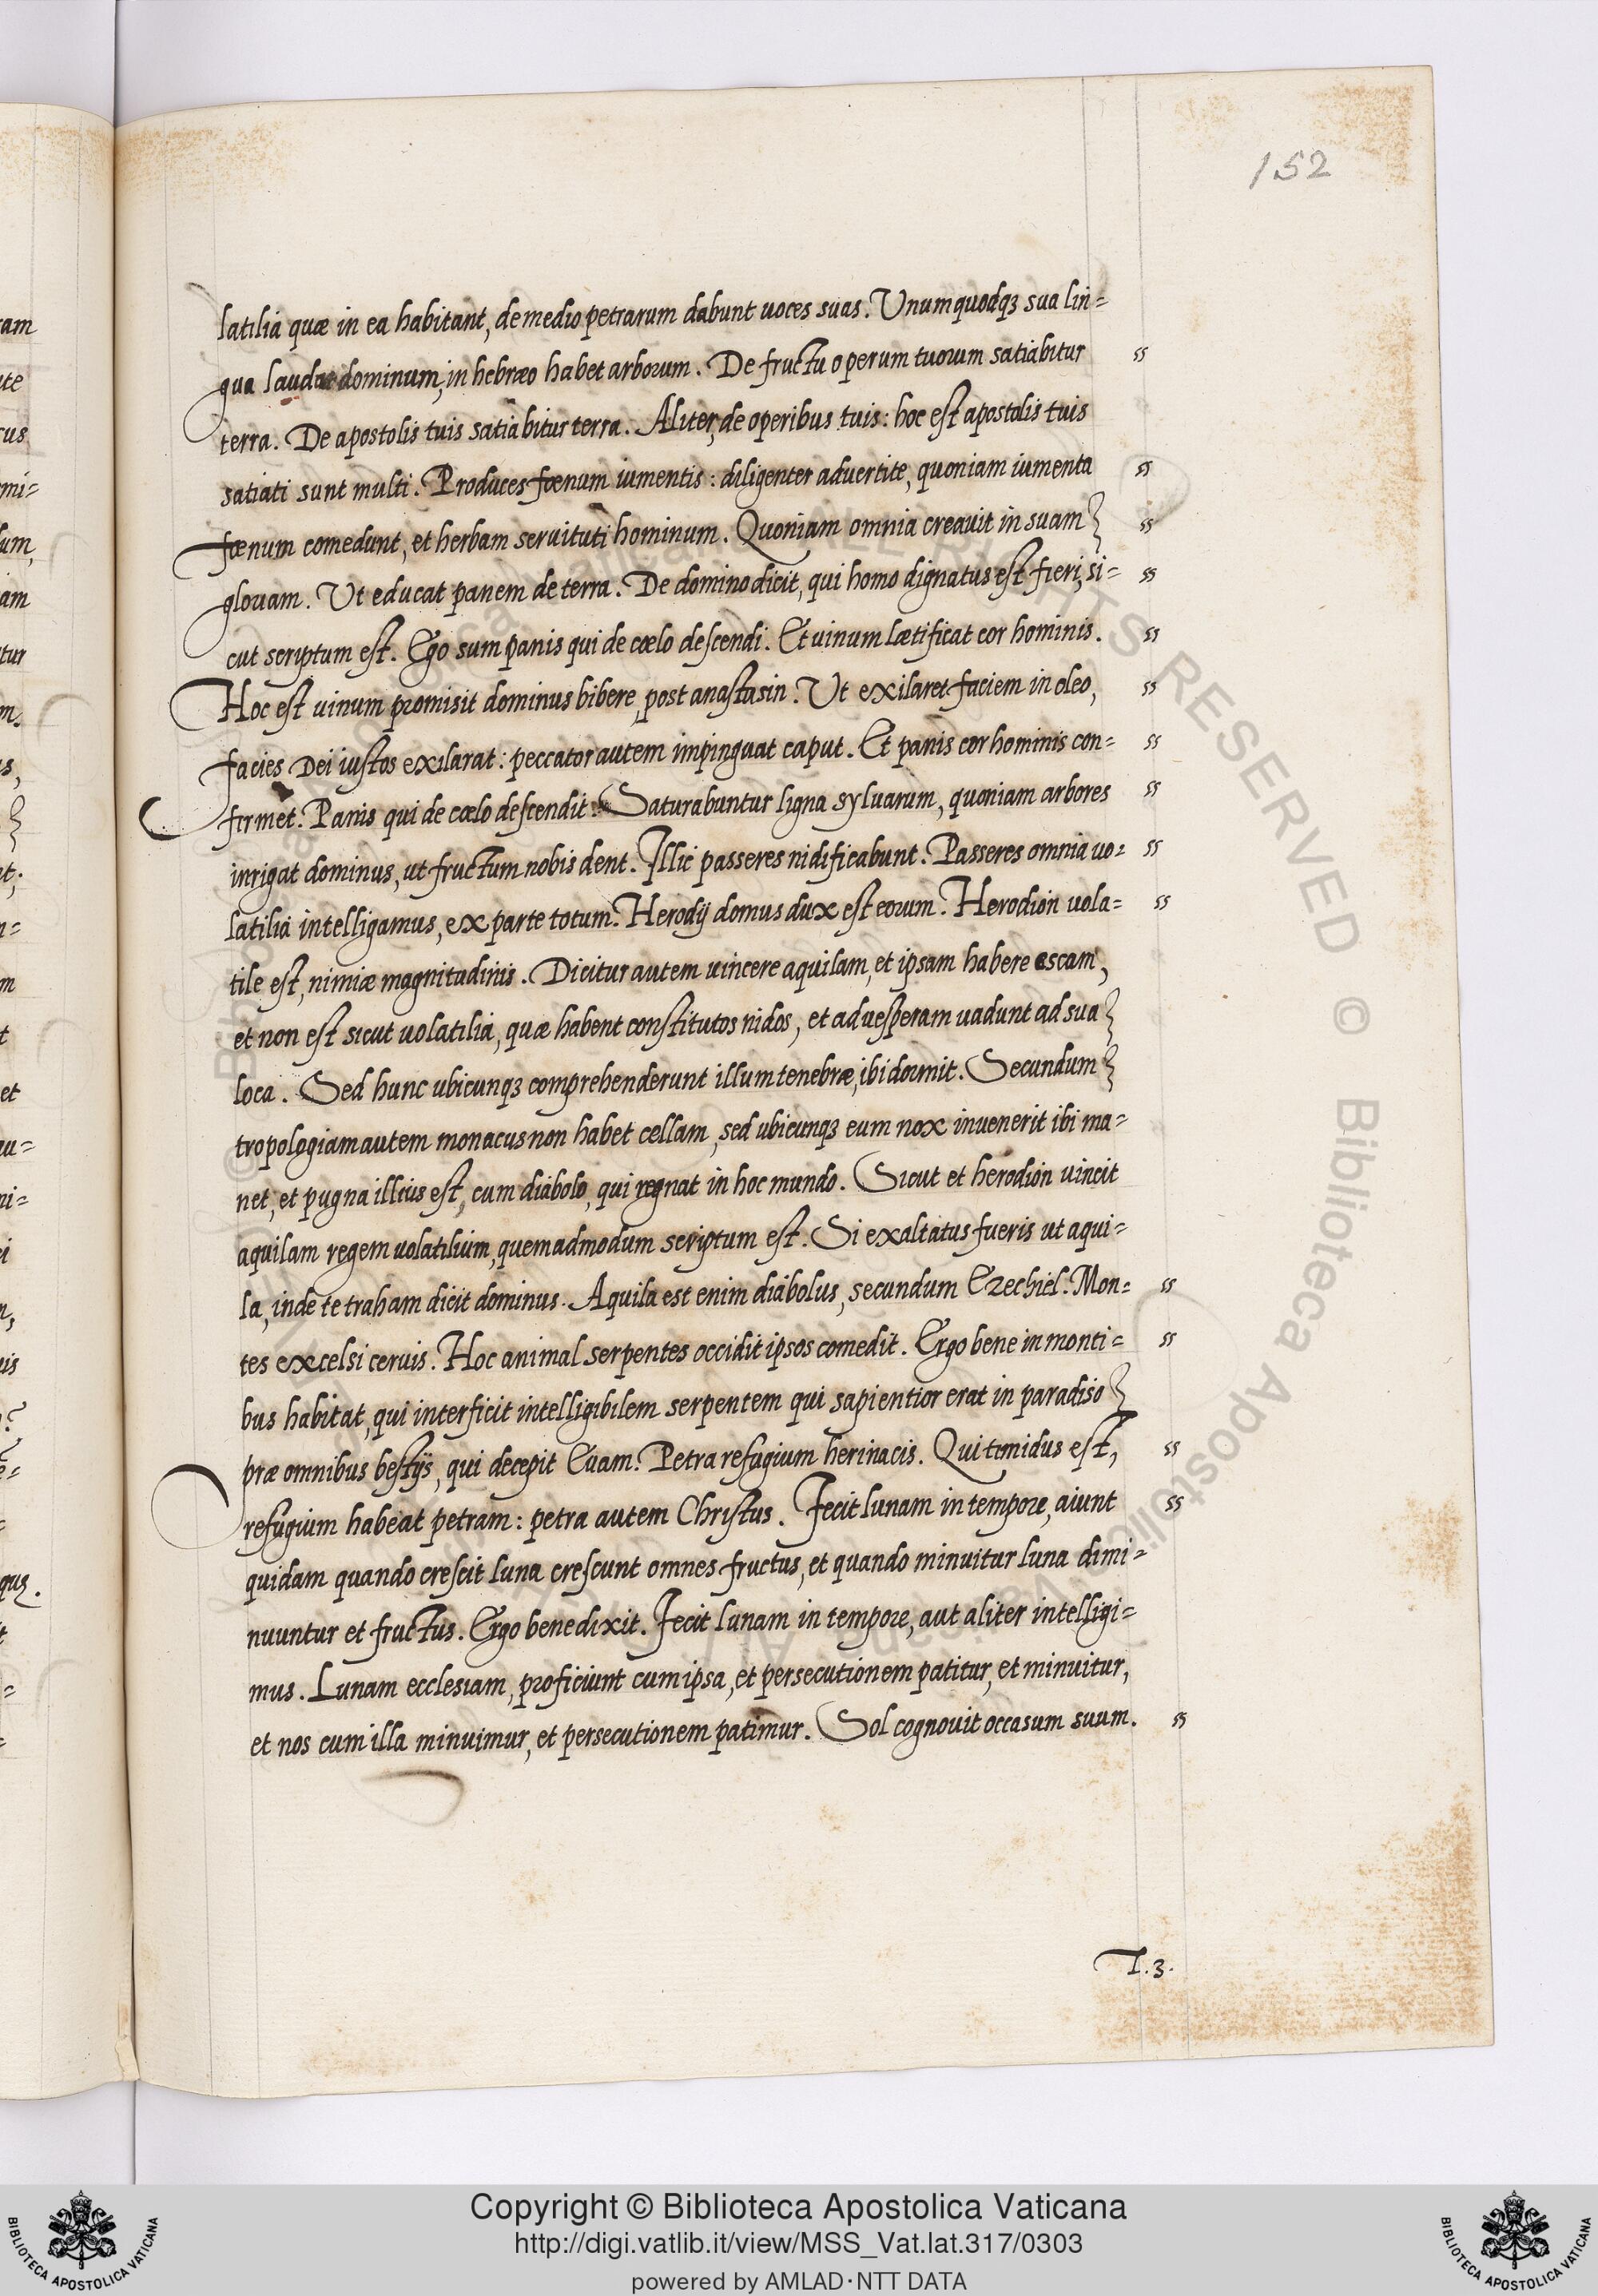 152
latilia quæ in ea habitant, de medio petrarum dabunt uoces suas. Unumquodqꝫ sua lin=
gua laudat dominum, in hebræo habet arborum. De fructu operum tuorum satiabitur "
terra. De apostolis tuis satiabitur terra. Aliter, de operibus tuis: hoc est apostolis tuis
satiati sunt multi. Produces fœnum iumentis: diligenter aduertite, quoniam iumenta "
fœnum comedunt, et herbam seruituti hominum. Quoniam omnia creauit in suam "
gloriam. Ut educat panem de terra. De domino dicit, qui homo dignatus est fieri, si= "
cut scriptum est. Ego sum panis qui de cœlo descendi. Et uinum lætificat cor hominis. "
Hoc est uinum promisit dominus bibere, post anastasin. Ut exilaret faciem in oleo, "
facies Dei iustos exilarat: peccator autem impinguat caput. Et panis cor hominis con= "
firmet. Panis qui de cœlo descendit. Saturabuntur ligna syluarum, quoniam arbores "
inrigat dominus, ut fructum nobis dent. Illic passeres nidificabunt. Passeres omnia uo= "
latilia intelligamus, ex parte totum. Herodij domus dux est eorum. Herodion uola= "
tile est, nimiæ magnitudinis. Dicitur autem uincere aquilam, et ipsam habere escam,
et non est sicut uolatilia, quæ habent constitutos nidos, et ad uesperam uadunt ad sua
loca. Sed hunc ubicunqꝫ comprehenderunt illum tenebræ, ibi dormit. Secundum
tropologiam autem monacus non habet cellam, sed ubicunqꝫ eum nox inuenerit ibi ma=
net, et pugna illius est, cum diabolo, qui regnat in hoc mundo. Sicut et herodion uincit
aquilam regem uolatilium, quemadmodum scriptum est. Si exaltatus fueris ut aqui=
la, inde te traham dicit dominus. Aquila est enim diabolus, secundum Ezechiel. Mon= "
tes excelsi ceruis. Hoc animal serpentes occidit ipsos comedit. Ergo bene in monti= "
bus habitat, qui interficit intelligibilem serpentem qui sapientior erat in paradiso
præ omnibus bestijs, qui decepit Euam. Petra refugium herinacis. Qui timidus est, "
refugium habeat petram: petra autem Christus. Fecit lunam in tempore, aiunt "
quidam quando crescit luna crescunt omnes fructus, et quando minuitur luna dimi=
nuuntur et fructus. Ergo bene dixit. Fecit lunam in tempore, aut aliter intelligi=
mus. Lunam ecclesiam, proficiunt cum ipsa, et persecutionem patitur, et minuitur,
et nos cum illa minuimur, et persecutionem patimur. Sol cognouit occasum suum. "
T.3.
Copyright © Biblioteca Apostolica Vaticana
http://digi.vatlib.it/view/MSS_Vat.lat.317/0303
powered by AMLAD·NTT DATA
BIBLIOTECA APOSTOLICA VATICANA
BIBLIOTECA APOSTOLICA VATICANA